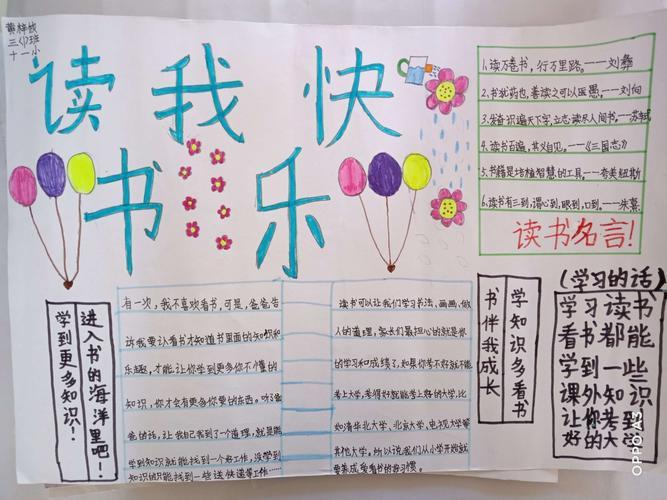 黄梓妏
三〈1〉班
十一小
读 我 快
书 乐
1.读万卷书，行万里路。——刘彝
2.书犹药也，善读之可以医愚。——刘向
3.发奋识遍天下字，立志读尽人间书。——苏轼
4.读书百遍，其义自见。——《三国志》
5.书籍是培植智慧的工具。——夸美纽斯
6.读书有三到，谓心到，眼到，口到。——朱熹
读书名言！
学到更多知识！
进入书的海洋里吧！
有一次，我不喜欢看书，可是，爸爸告
诉我要认看书才知道书里面的知识和
乐趣，才能让你学到更多你不懂的
知识，你才会有更多你要的东西。听
爸的话，让我自己找到了一个道理，就是
学到知识就能找到一个好工作，没学到
知识的只能找到一些送快递等工作……
读书可以让我们学习书法、画画、做
人的道理，家长们最担心的就是你
的学习和成绩了，如果你考不好就不能
考上大学，考得好就能考上好的大学，比
如清华北大学，北京大学，电视大学等
其他大学。所以说我们从小学开始就
要养成爱看书的好习惯。
书伴我成长
学知识多看书
（学习的话）
学习读书
看书都能
学到一些
课外知识
让你考到
好的大学
OPPO A3